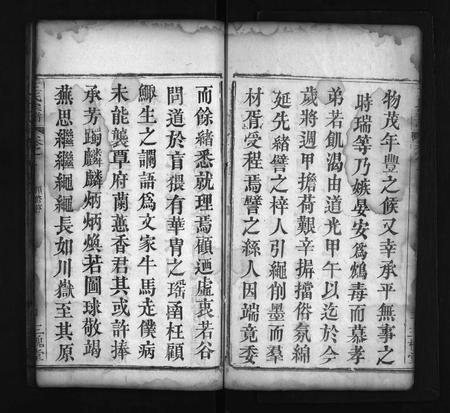 物茂年豐之候又幸承平無事之
時瑞等乃嫉晏安爲鴆毒而慕孝
弟若飢渴由道光甲午以迄於今
歲將週甲擔荷艱辛摒擋俗氛綿
延先緒譬之梓人引繩削墨而羣
材胥受程焉譬之絲人因端竟委
而餘緒悉就理焉顧迺虛衷若谷
問道於盲猥有華胄之瑤函枉顧
鯫生之謭語爲文家牛馬走僕病
未能襲覃府蘭蕙香君其或許捧
承芳躅麟麟炳炳煥若圖球敬竭
蕪思繼繼繩繩長如川嶽至其原
三槐堂